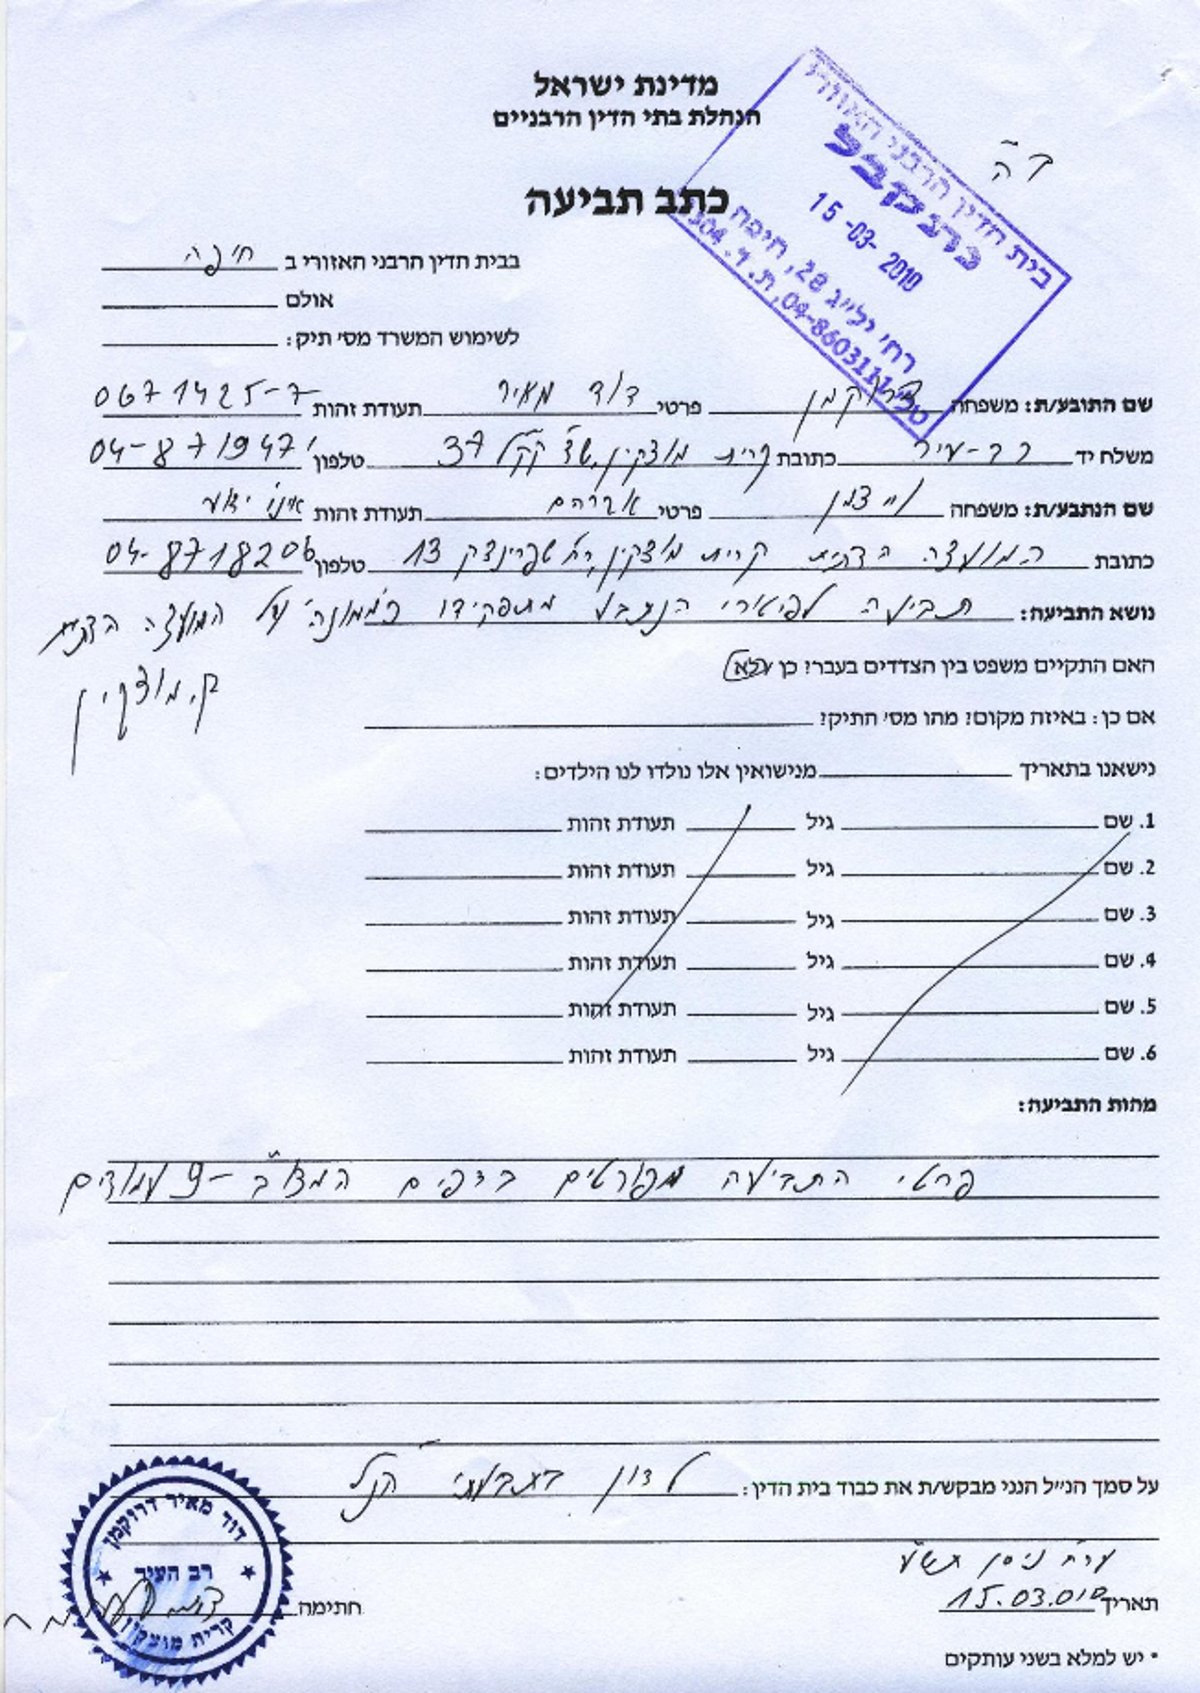 מדינת ישראל
הנהלת בתי הדין הרבניים
כתב תביעה
בית הדין הרבני האזורי
נתקבל
15-03-2010
רח' יל"ג 28, חיפה
בבית הדין הרבני האזורי ב חיפה
אולם
לשימוש המשרד מס' תיק:
שם התובע/ת: משפחה דרוקמן פרטי דוד מאיר תעודת זהות 0671425-7
משלח יד רב-עיר כתובת קרית מוצקין, שד' קק"ל 37 טלפון 04-8719471
שם הנתבע/ת: משפחה ויצמן פרטי אברהם תעודת זהות אינו ידוע
כתובת המועצה הדתית קרית מוצקין, רח' שפרינצק 13 טלפון 04-8718206
נושא התביעה: תביעה לפיטורי הנתבע מתפקידו כ"ממונה" על המועצה הדתית
ק. מוצקין
האם התקיים משפט בין הצדדים בעבר? כן / לא
אם כן: באיזה מקום? מהו מס' התיק?
נישאנו בתאריך מנישואין אלו נולדו לנו הילדים:
1. שם גיל תעודת זהות
2. שם גיל תעודת זהות
3. שם גיל תעודת זהות
4. שם גיל תעודת זהות
5. שם גיל תעודת זהות
6. שם גיל תעודת זהות
מהות התביעה:
פרטי התביעה מפורטים בדפים המצו"ב - 9 עמודים
על סמך הנ"ל הנני מבקש/ת את כבוד בית הדין: לדון בתבעתי הנ"ל
ער"ח ניסן תש"ע
תאריך 15.03.010
חתימה
דוד מאיר דרוקמן
רב העיר
קרית מוצקין
• יש למלא בשני עותקים